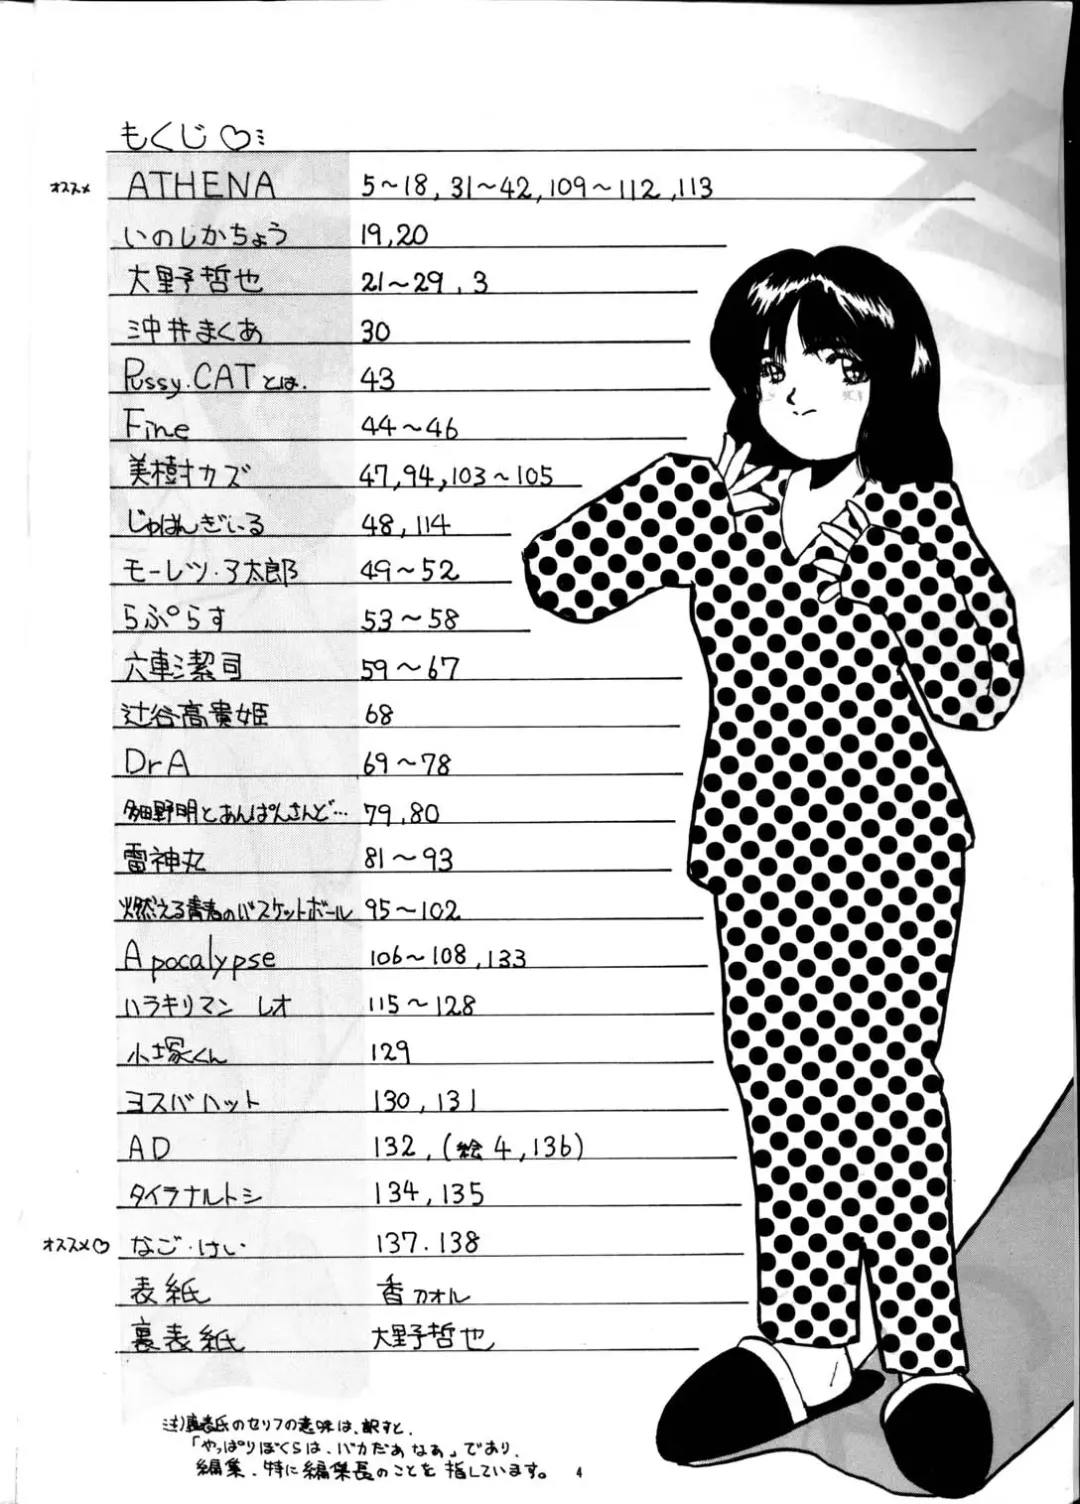 もくじ♡
オススメ ATHENA 5〜18, 31〜42, 109〜112, 113
いのしかちょう 19,20
大野哲也 21〜29, 3
沖井まくあ 30
Pussy・CATとは. 43
Fine 44〜46
美樹カズ 47,94,103〜105
じゅばんぎぃる 48,114
モーレツ・ア太郎 49〜52
らぷらす 53〜58
六車潔司 59〜67
辻谷高貴姫 68
DrA 69〜78
多田野明とあんぱんさんど… 79,80
雷神丸 81〜93
燃える青春のバスケットボール 95〜102
Apocalypse 106〜108, 133
ハラキリマン レオ 115〜128
小塚くん 129
ヨスバハット 130, 131
AD 132, (絵4, 136)
タイラナルトシ 134, 135
オススメ♡ なご・けい 137.138
表紙 香カオル
裏表紙 大野哲也
注)裏表氏のセリフの意味は、訳すと、
「やっぱりぼくらは、バカだぁなぁ」であり、
編集、特に編集長のことを指しています。 4